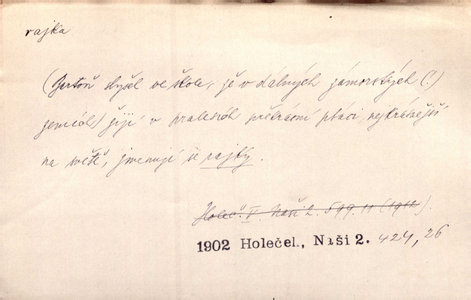 rajka
(Bertoň slyšel ve škole, že v dalných zámorských (!)
zemích) žijí v pralesích překrásní ptáci nejkrásnější
na světě, jmenují se rajky.
Holeč. V Naši 2. 599. 11 (1912).
1902 Holečel., Naši 2. 424, 26